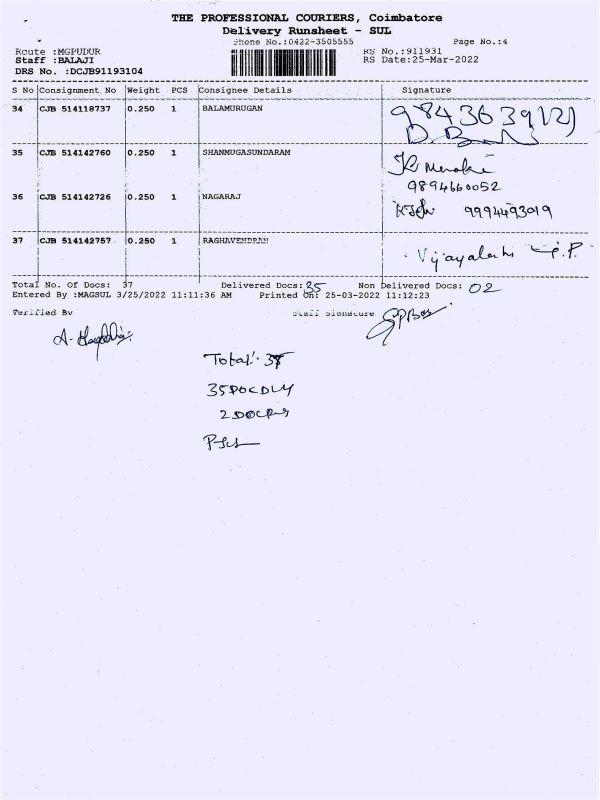 THE PROFESSIONAL COURIERS, Coimbatore
Delivery Runsheet - SUL
Phone No.:0422-3505555 Page No.:4
Route :MGPUDUR RS No.:911931
Staff :BALAJI RS Date:25-Mar-2022
DRS No. :DCJB91193104
S No Consignment No Weight PCS Consignee Details Signature
34 CJB 514118737 0.250 1 BALAMURUGAN
35 CJB 514142760 0.250 1 SHANMUGASUNDARAM
9894660052
36 CJB 514142726 0.250 1 NAGARAJ 9994493019
37 CJB 514142757 0.250 1 RAGHAVENDRAN
Total No. Of Docs: 37 Delivered Docs: 35 Non Delivered Docs: 02
Entered By :MAGSUL 3/25/2022 11:11:36 AM Printed On: 25-03-2022 11:12:23
Verified By Staff Signature
Total: 37